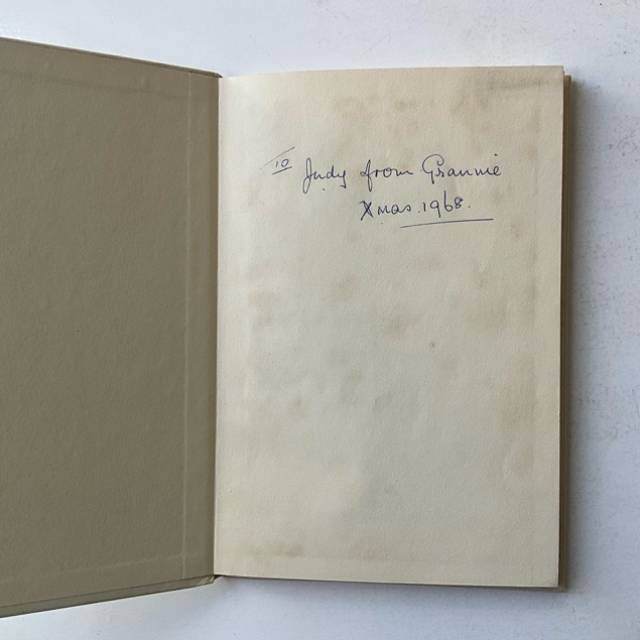 To Judy from Grannie
Xmas. 1968.